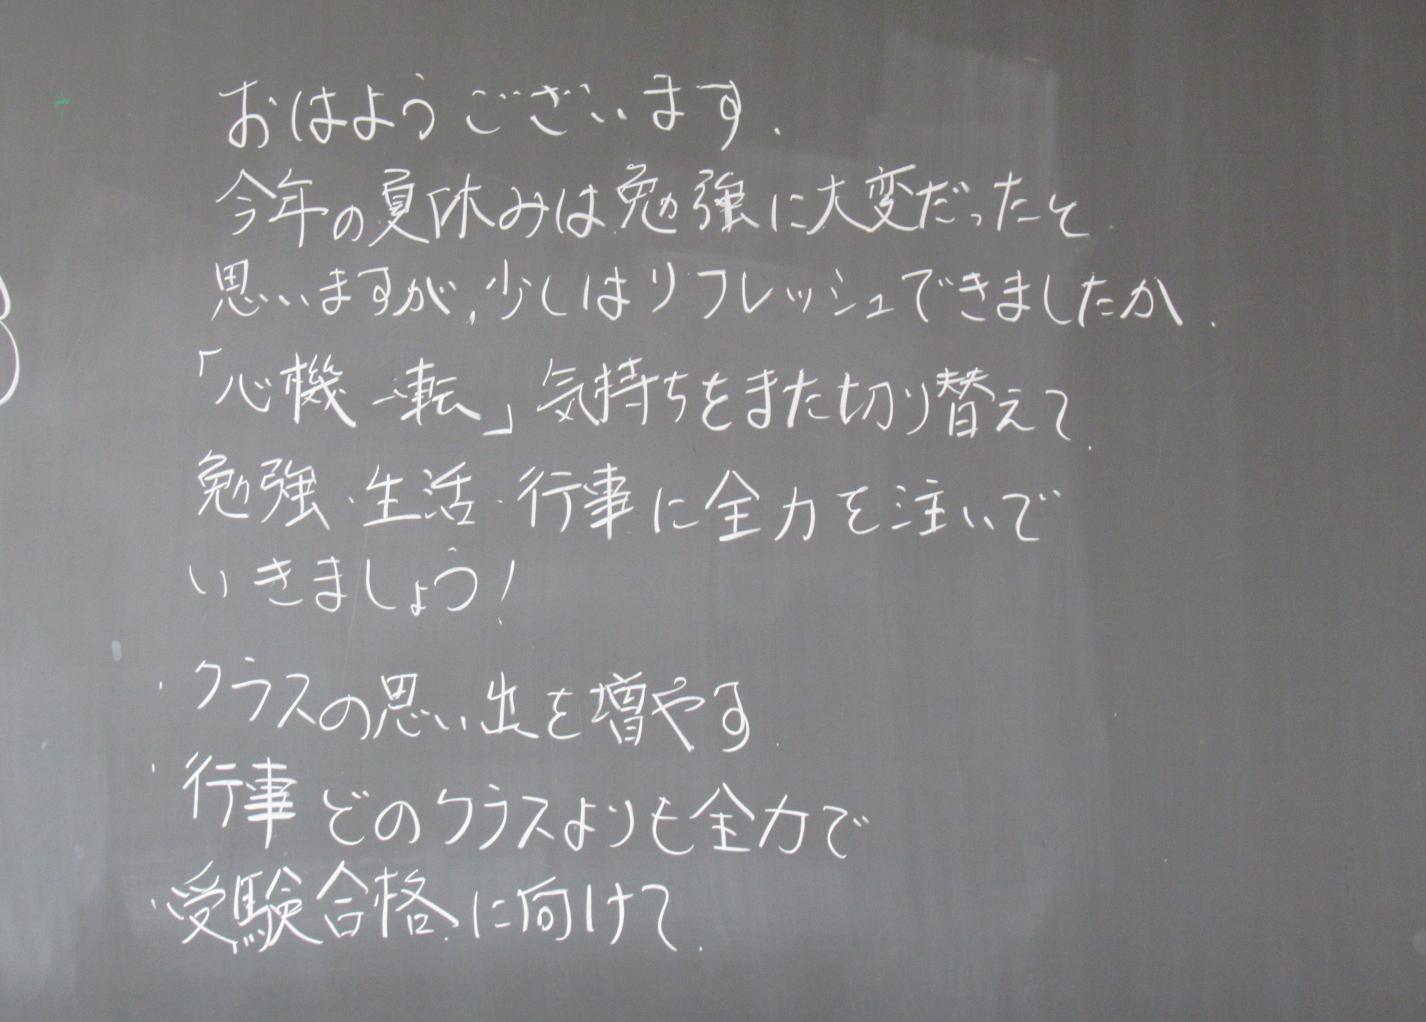 おはようございます.
今年の夏休みは勉強に大変だったと
思いますが,少しはリフレッシュできましたか.
「心機一転」気持ちをまた切り替えて
勉強・生活・行事に全力を注いで
いきましょう!
・クラスの思い出を増やす
・行事 どのクラスよりも全力で
・受験合格に向けて.